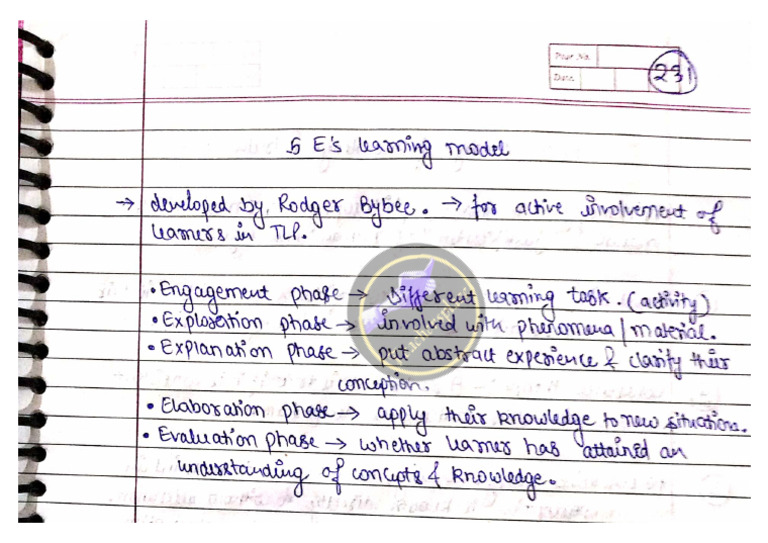 Page No.
Date
231
5 E's learning model
→ developed by, Rodger Bybee. → for active involvement of
learners in TLP.
• Engagement phase → different learning task. (activity)
• Exploration phase → involved with phenomena / material.
• Explanation phase → put abstract experience & clarify their
conception.
• Elaboration phase → apply their knowledge to new situations.
• Evaluation phase → whether learner has attained an
understanding of concepts & knowledge.